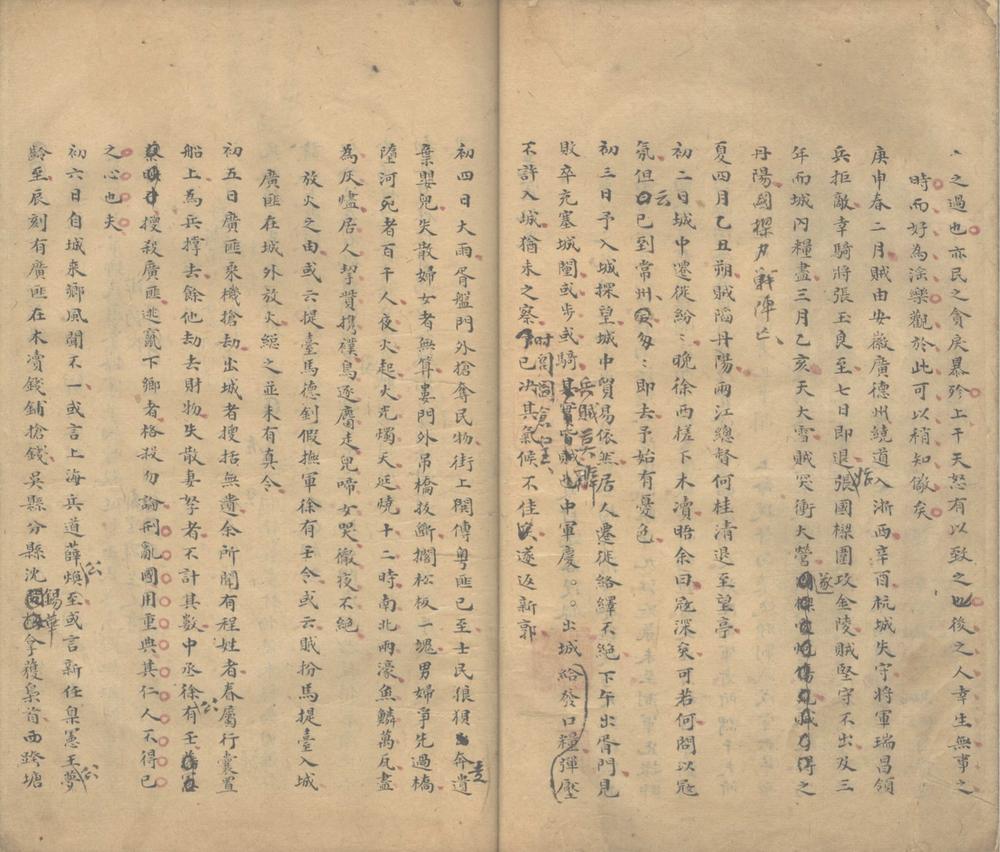 之過也亦民之貪戾暴殄上干天怒有以致之也後之人幸生無事之
時而好為淫樂觀於此可以稍知儆矣
庚申春二月賊由安徽廣德州繞道入浙西辛酉杭城失守將軍瑞昌領
兵拒敵幸騎將張玉良至七日即退張國樑圍攻金陵賊堅守不出及三
年而城內糧盡三月乙亥天大雪賊突衝大營遂之
丹陽國樑力戰陣亡
夏四月乙丑朔賊陷丹陽兩江總督何桂清退至望亭
初二日城中遷徙紛:晚徐西槎下木瀆晤余曰寇深矣可若何問以寇
氛但云已到常州匆:即去予始有憂色
初三日予入城探望城中貿易依然居人遷徙絡繹不絕下午出胥門見
敗卒充塞城闉或步或騎兵賊莫辨中軍慶。。出城給發口糧彈壓
不許入城猶未之察時閶倉已決其氣候不佳遂返新郭
初四日大雨胥盤門外搶奪民物街上鬨傳粵匪已至士民狼狽奔走遺
棄嬰兒失散婦女者無算婁門外吊橋扳斷擱松板一塊男婦爭先過橋
墮河死者百千人夜火起火光燭天延燒十二時南北兩濠魚鱗萬瓦盡
為灰燼居人挈貲攜襆鳥逐麕走兒啼女哭徹夜不絕
放火之由或云提臺馬德釗假撫軍徐有壬令或云賊扮馬提臺入城
廣匪在城外放火總之並未有真令
初五日廣匪乘機搶劫出城者搜括無遺余所聞有程姓者眷屬行囊置
船上為兵撐去餘他劫去財物失散妻孥者不計其數中丞徐公有壬
搜殺廣匪逃竄下鄉者格殺勿論刑亂國用重典其仁人不得已
之心也夫
初六日自城來鄉風聞不一或言上海兵道薛公煥至或言新任臬憲王公夢
齡至辰刻有廣匪在木瀆錢鋪搶錢吳縣分縣沈錫華拿獲梟首西跨塘